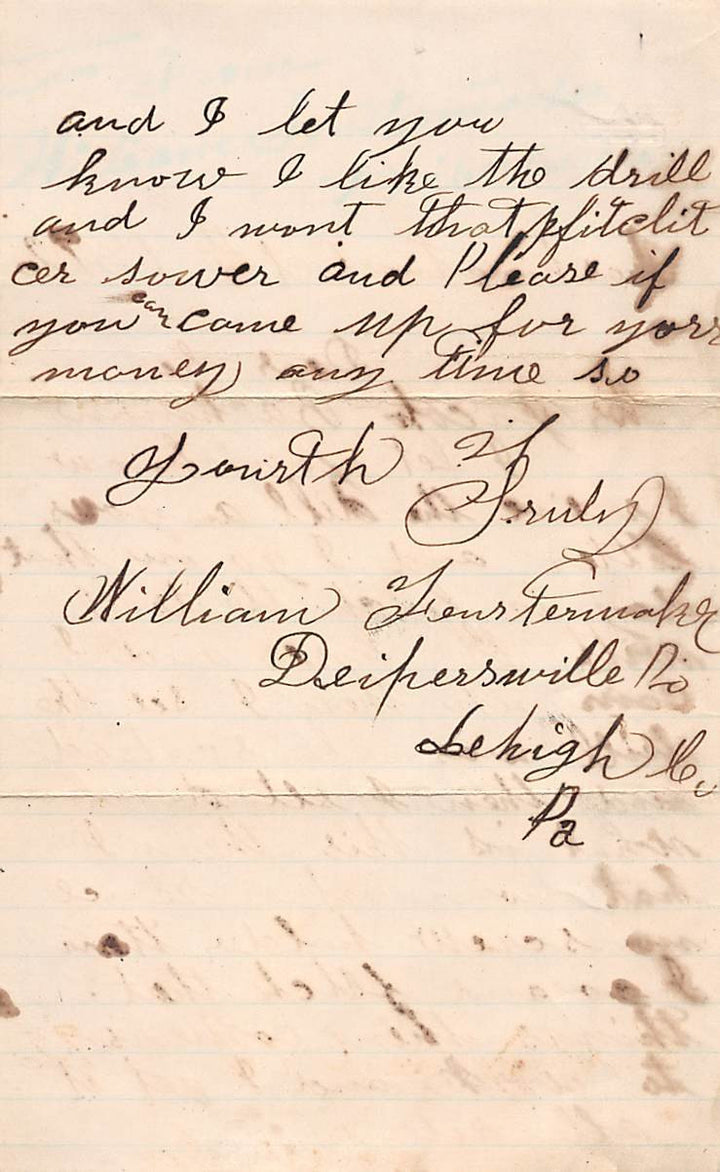 and I let you
know I like the drill
and I wont that pfitelit
cer sower and Please if
you can come up for yorr
money any time so
Yourth
Truly
William Fenstermaker
Deipersville Po
Lehigh Co
Pa